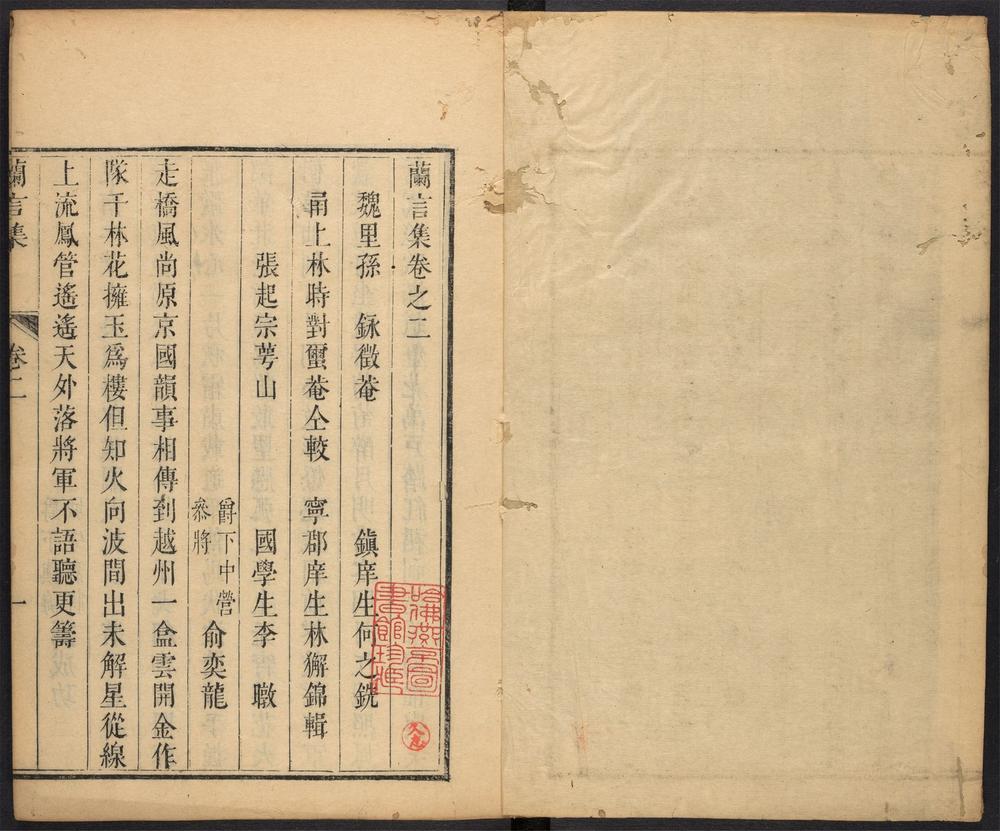 蘭言集卷之二
魏里孫 銢徵菴 鎮庠生何之銑
甬上林時對璽菴仝較 寧郡庠生林獬錦輯
張起宗萼山 國學生李 暾
爵下中營
參將
俞奕龍
走橋風尚原京國韻事相傳到越州一盆雲開金作
隊千林花擁玉爲樓但知火向波間出未解星從線
上流鳳管遙遙天外落將軍不語聽更籌
蘭言集 卷二 一
哈佛燕京圖
書館珍藏